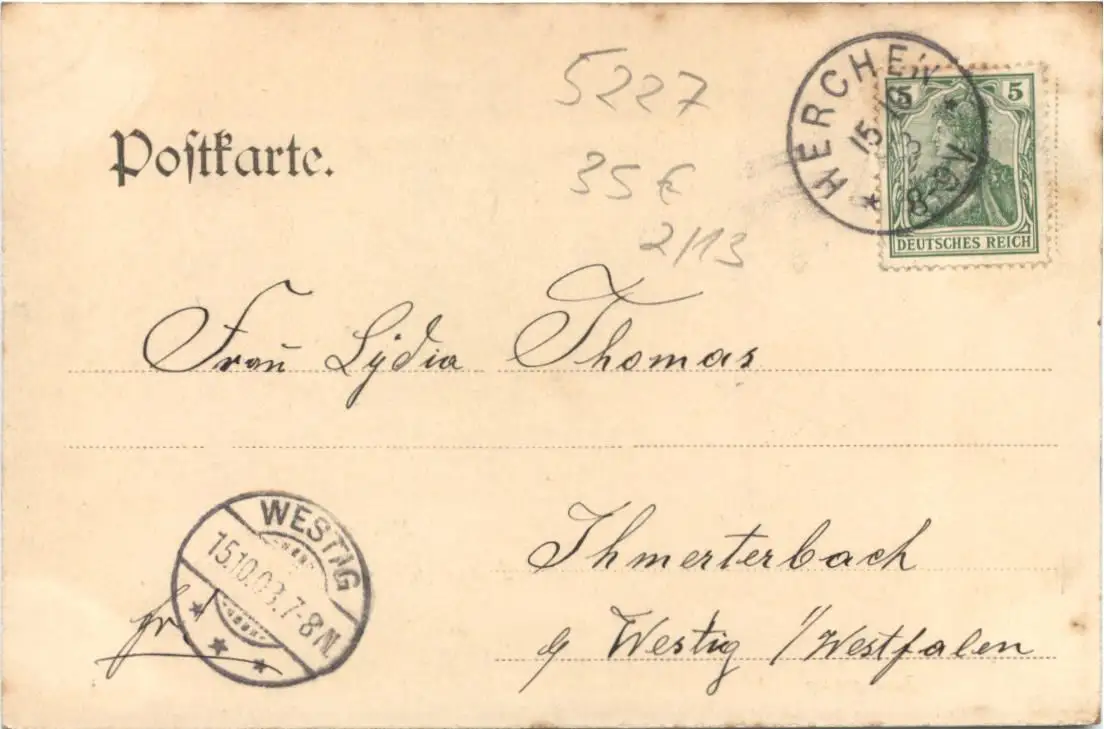 Postkarte.
5227
35 €
2/13
HERCHEN
15.10
8-9V
5 5
DEUTSCHES REICH
Frau Lydia Thomas
WESTIG
15.10.03.7-8N.
Ihmerterbach
b/ Westig i/Westfalen